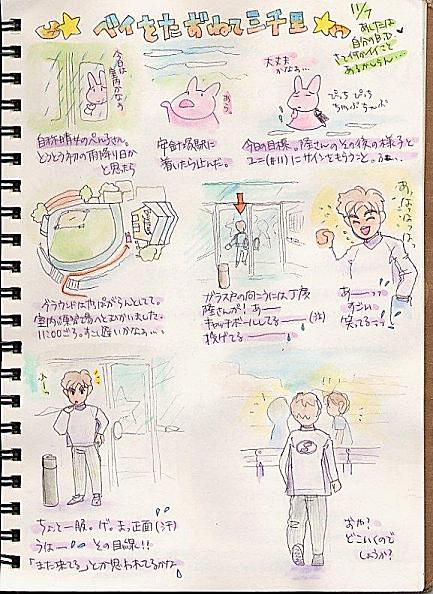 ベイをたずねて三千里
11/7
あしたは
自分の日♡
さて何かイイこと
あるかしらん…
今日は室内かなぁ
自称晴れ女のぺん子さん。
とうとう初の雨降り日か
と思ったら
あら
安針塚駅に
着いたら止んだ。
大丈夫かなぁ…
ぴっちぴっち
ちゃぷちゃぷ
今日の目標。隆さんのその後の様子と
ユニ(#11)にサインをもらうこと。
グラウンドはやっぱがらんとしてて。
室内練習場へとむかいました。
11:00ごろ。すこし遅いかなぁ…
ガラス戸の向こうには丁度
隆さんが!あー
キャッチボールしてるー(泣)
投げてるー
あっはっはっはっ
あーーっっ
すごい
笑ってるーっ
ふー
ちょっと一服。ゲ。まっ正面(汗)
うはー その目線!!
「また来てる」とか思われてるかな
おや?
どこいくので
しょうか?